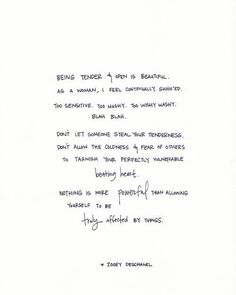 BEING TENDER & OPEN IS BEAUTIFUL.
AS A WOMAN, I FEEL CONTINUALLY SHHH'ED.
TOO SENSITIVE. TOO MUSHY. TOO WISHY WASHY.
BLAH BLAH.
DON'T LET SOMEONE STEAL YOUR TENDERNESS.
DON'T ALLOW THE COLDNESS & FEAR OF OTHERS
TO TARNISH YOUR PERFECTLY VULNERABLE
beating heart.
NOTHING IS MORE powerful THAN ALLOWING
YOURSELF TO BE
truly AFFECTED BY THINGS.
♥ ZOOEY DESCHANEL